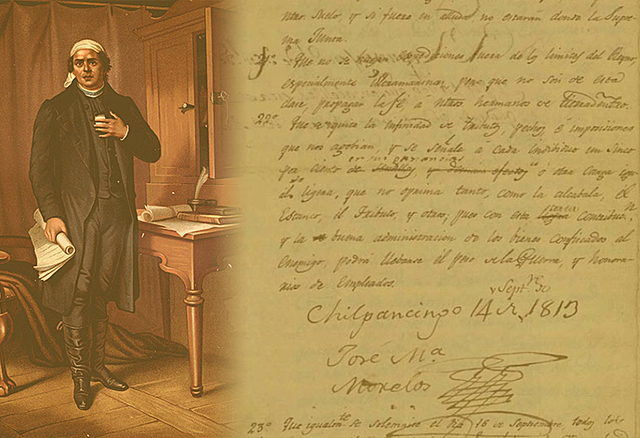 ntro. Suelo, y si fuera en ayuda no estaran donde la Supre-
ma Junta.
Que no se hagan expediciones fuera de los limites del Reyno,
especialmente Ultramarinas, pero que no son de esta
clase propagar la fe a ntros hermanos de tierradentro.
22º Que se quite la infinidad de tributos, pechos, é imposiciones
que nos agobian, y se señale á cada individuo un cinco
en sus ganancias
por ciento ú otra carga
ligera, que no oprima tanto, como la alcabala, el
Estanco, el Tributo, y otros, pues con esta
y la buena administracion de los bienes confiscados al
Enemigo, podrá llebarse el peso de la Guerra, y honora-
rios de Empleados.
Chilpancingo 14 1813
José Mª
Morelos
23º Que se solemnice el dia 16 de Septiembre, todos los